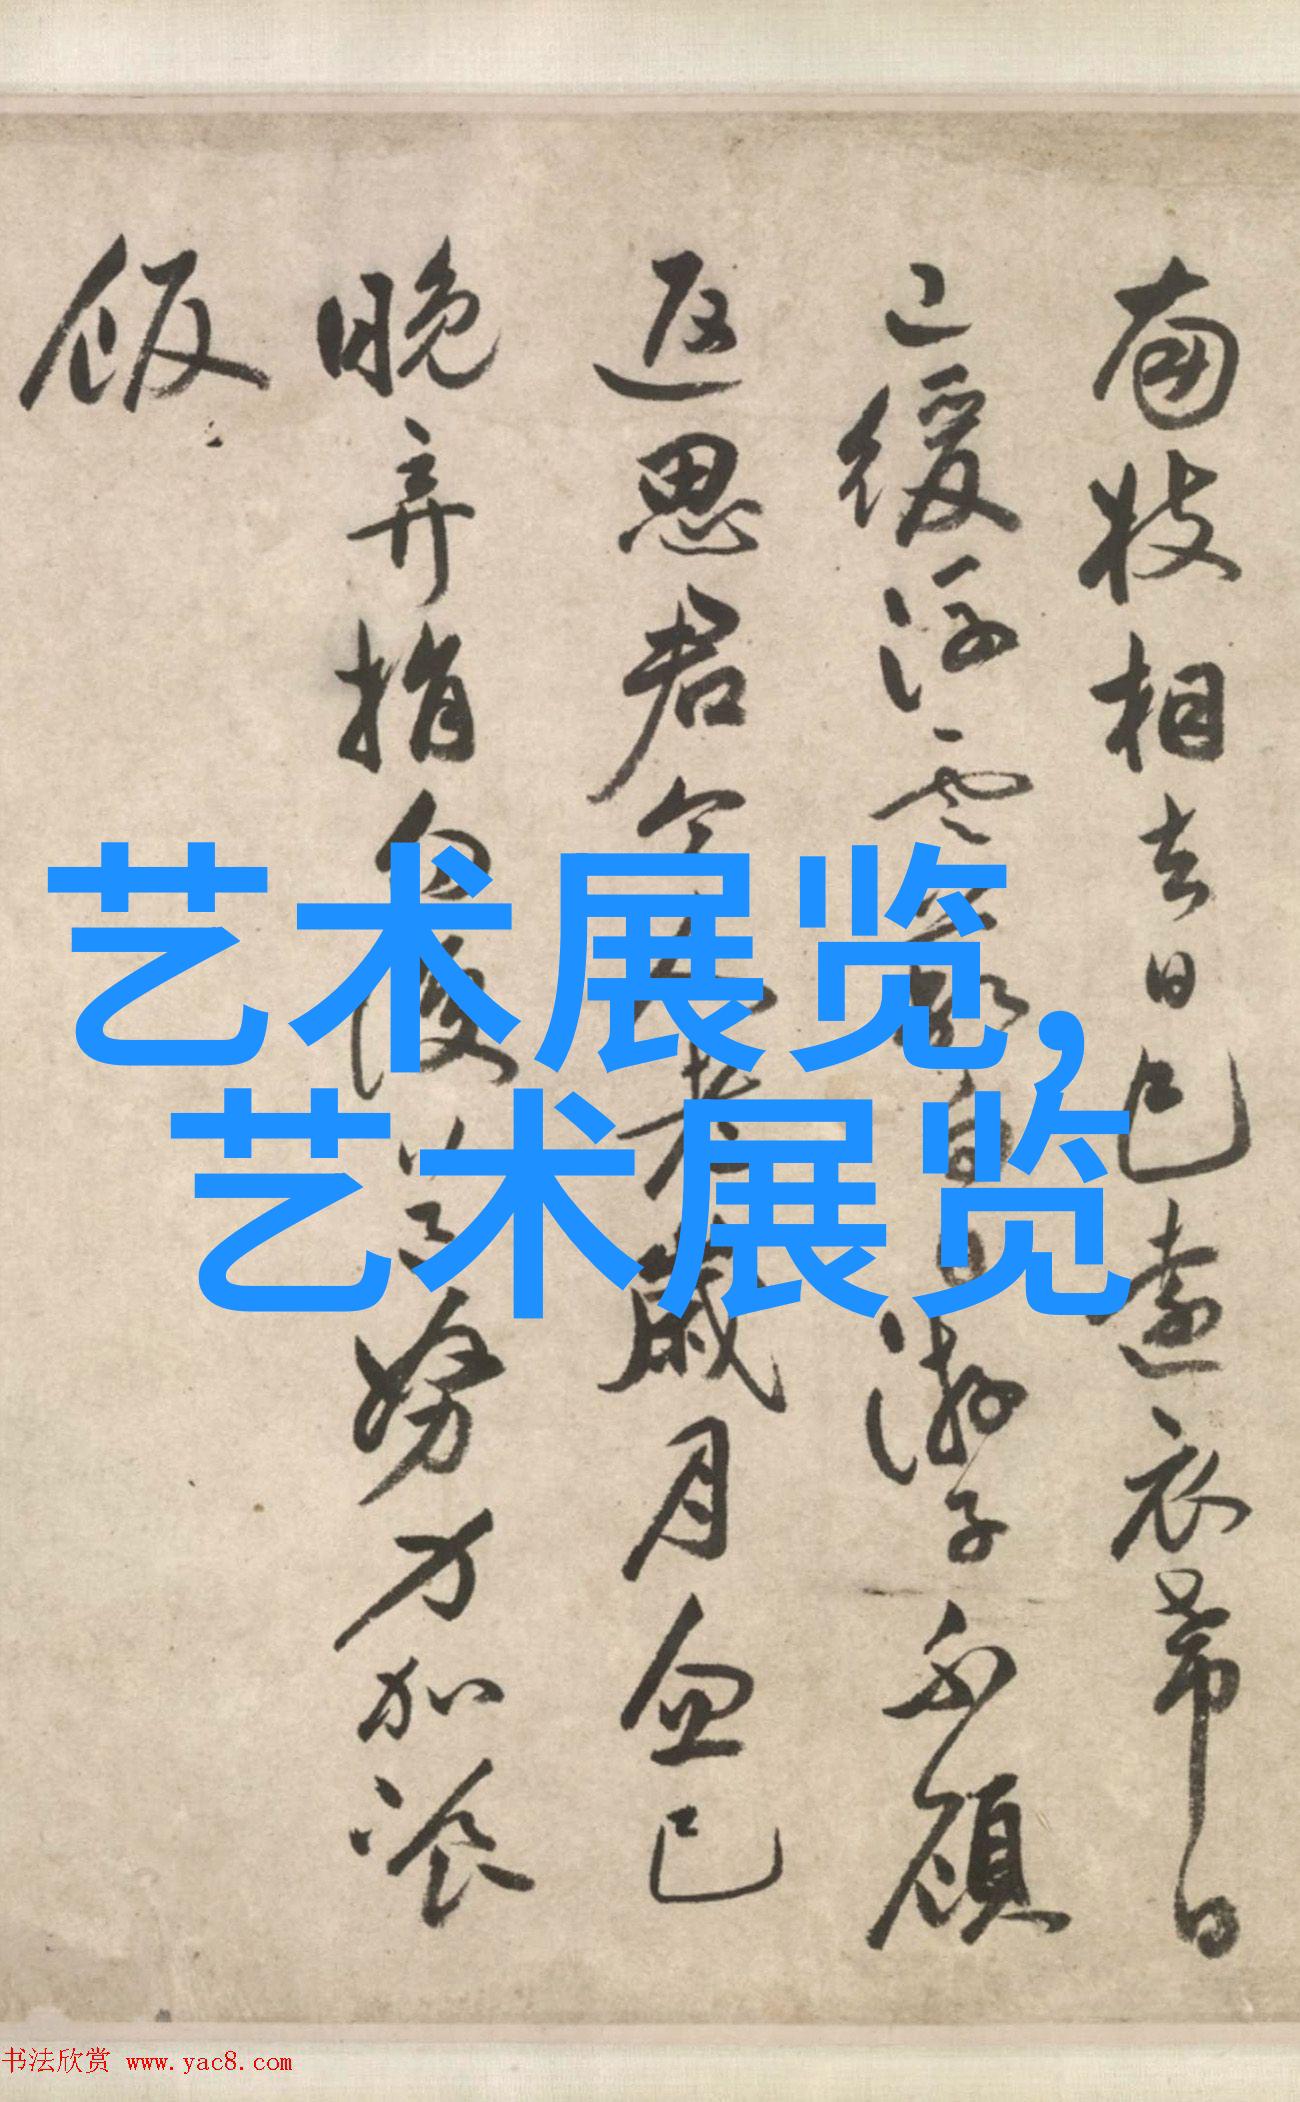 南枝相去日已遠衣帶日
已緩浮雲蔽白日游子不顧
返思君令人老歲月忽已
晚弃捐勿復道努力加飡
飯
艺术展览,
艺术展览
书法欣赏 www.yac8.com